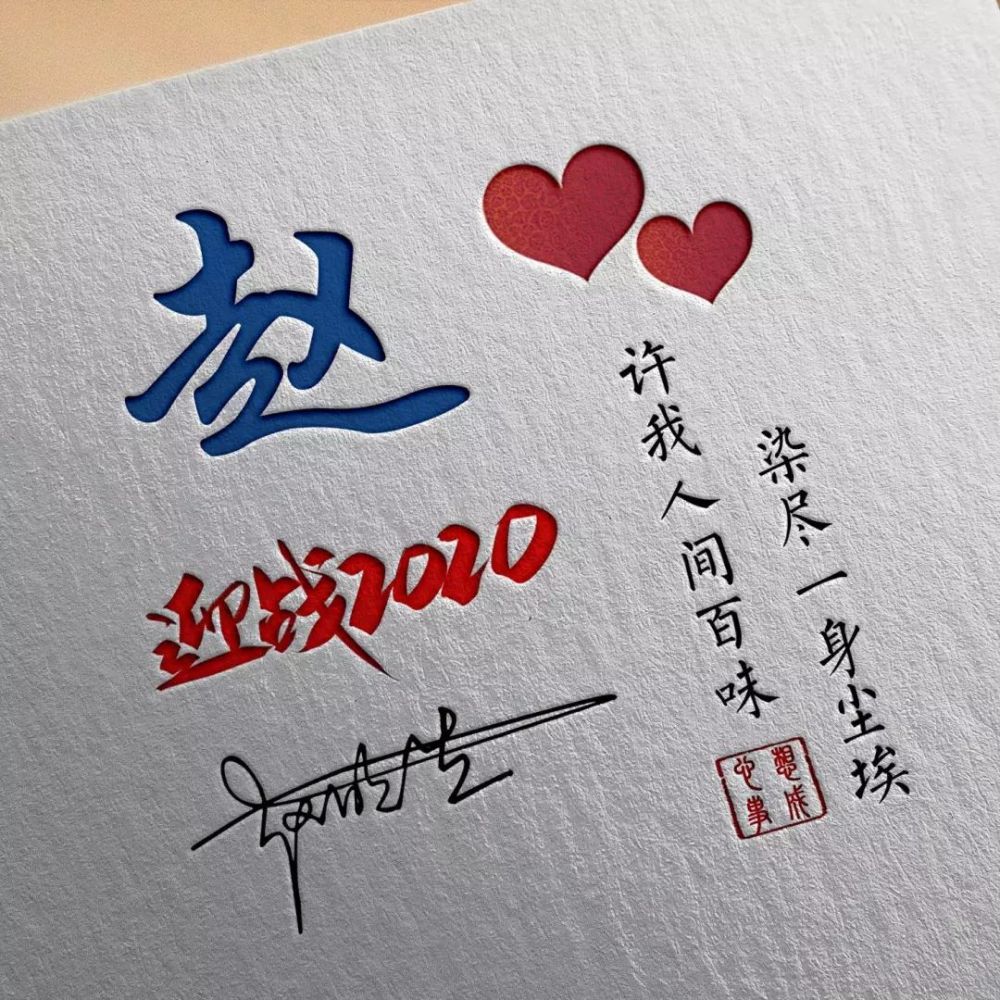 赵
迎战2020
许我人间百味
染尽一身尘埃
心想事成